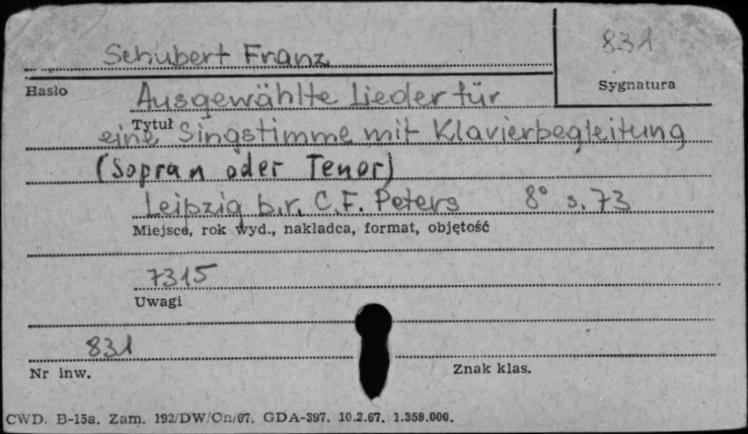 Schubert Franz
831
Hasło
Sygnatura
Ausgewählte Lieder für
Tytuł
eine Singstimme mit Klavierbegleitung
(Sopran oder Tenor)
Leipzig b.r. C.F. Peters 8° s. 73
Miejsce, rok wyd., nakładca, format, objętość
7315
Uwagi
831
Nr inw.
Znak klas.
CWD. B-15a. Zam. 192/DW/Cn/67. GDA-397. 10.2.67. 1.359.000.